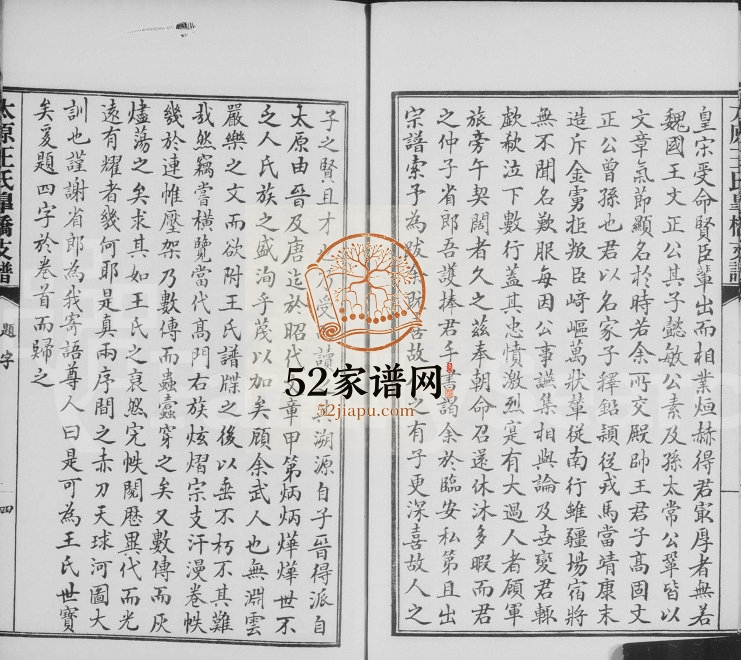 皇宋受命賢臣輩出而相業烜赫得君寵厚者無若
魏國王文正公其子懿敏公素及孫太常公鞏皆以
文章氣節顯名於時若余所交殿帥王君子高固文
正公曾孫也君以名家子釋鉛槧從戎馬當靖康末
造斥金虜拒叛臣崎嶇萬狀輦從南行雖疆場宿將
無不聞名歎服每因公事讌集相與論及世變君輒
歔欷泣下數行蓋其忠憤激烈寔有大過人者顧軍
旅旁午契闊者久之茲奉朝命召還休沐多暇而君
之仲子省郎吾護捧君手書謁余於臨安私第且出
宗譜索予為跋余既喜故之有子更深喜故人之
子之賢且才受其溯源自子晉得派自
太原由晉及唐迄於昭代章甲第炳炳燁燁世不
乏人氏族之盛洵乎蔑以加矣顧余武人也無淵雲
嚴樂之文而欲附王氏譜牒之後以垂不朽不其難
哉然竊嘗橫覽當代高門右族炫熠宗支汗漫卷帙
幾於連帷壓架乃數傳而蟲蠹穿之矣又數傳而灰
燼蕩之矣求其如王氏之裒然完帙閱歷異代而光
遠有耀者幾何耶是真兩序間之赤刀天球河圖大
訓也謹謝省郎為我寄語尊人曰是可為王氏世寶
矣爰題四字於卷首而歸之
太原王氏皐橋支譜
題字
四
52家谱网
52jiapu.com